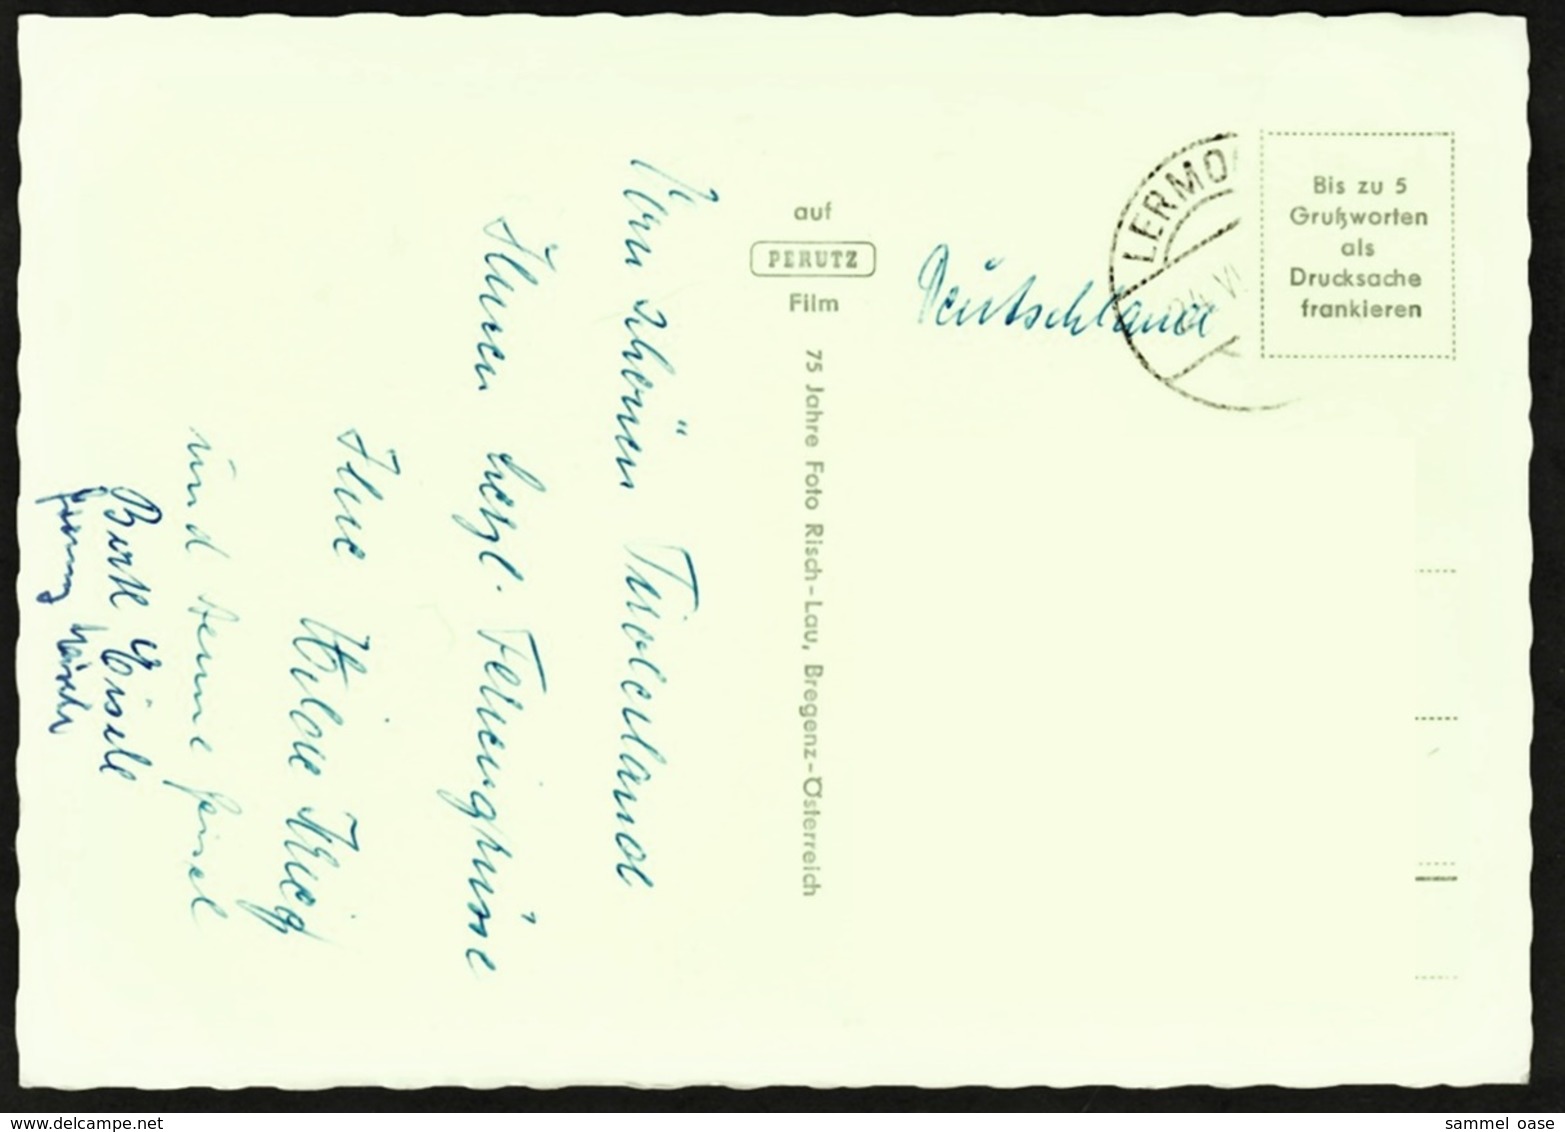 Vom schönen Tirolerland
Ihnen herzl. Feriengrüsse
Ihre Hilde
und
Berta Eisele
auf
PERUTZ
Film
75 Jahre Foto Risch-Lau, Bregenz-Österreich
Deutschland
LERMO
24. VI
Bis zu 5
Grußworten
als
Drucksache
frankieren
delcampe.net
sammel oase